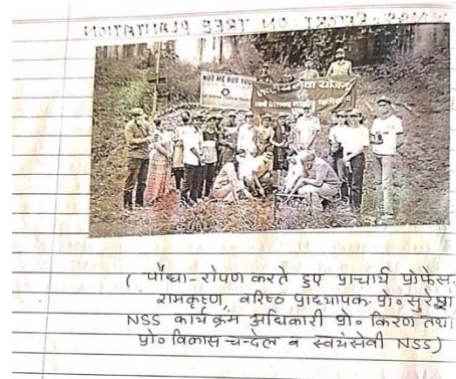 NOT ME BUT YOU
( पौधा-रोपण करते हुए प्राचार्य प्रोफेस.
रामकृष्ण, वरिष्ठ प्राध्यापक प्रो० सुरेश
NSS कार्यक्रम अधिकारी प्रो० किरण तथा
प्रो० विकास चन्देल व स्वयंसेवी NSS)